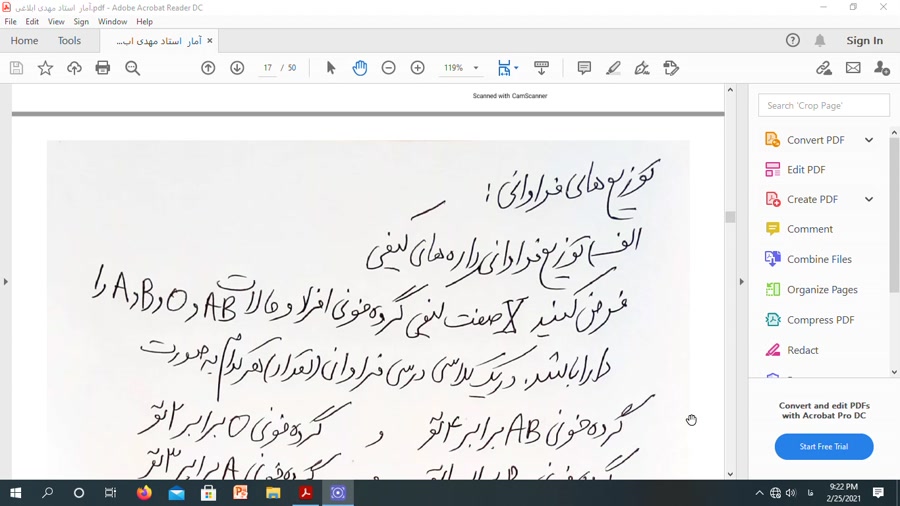 آمار استاد مهدی ابلاغی.pdf - Adobe Acrobat Reader DC
File Edit View Sign Window Help
Home Tools آمار استاد مهدی اب... × Sign In
17 / 50 119%
Scanned with CamScanner
Search 'Crop Page'
توزیع های فراوانی :
الف) توزیع فراوانی داده های کیفی
فرض کنید X صفت کیفی گروه خونی افراد و حالات AB و O و B و A را
دارا باشد. در یک کلاس درسی فراوانی (تعداد) هر کدام به صورت
گروه خونی AB برابر 4 تو و گروه خونی O برابر 2 تو
گروه خونی B برابر و گروه خونی A برابر 3 تو
Convert PDF
Edit PDF
Create PDF
Comment
Combine Files
Organize Pages
Compress PDF
Redact
Convert and edit PDFs
with Acrobat Pro DC
Start Free Trial
9:22 PM
2/25/2021